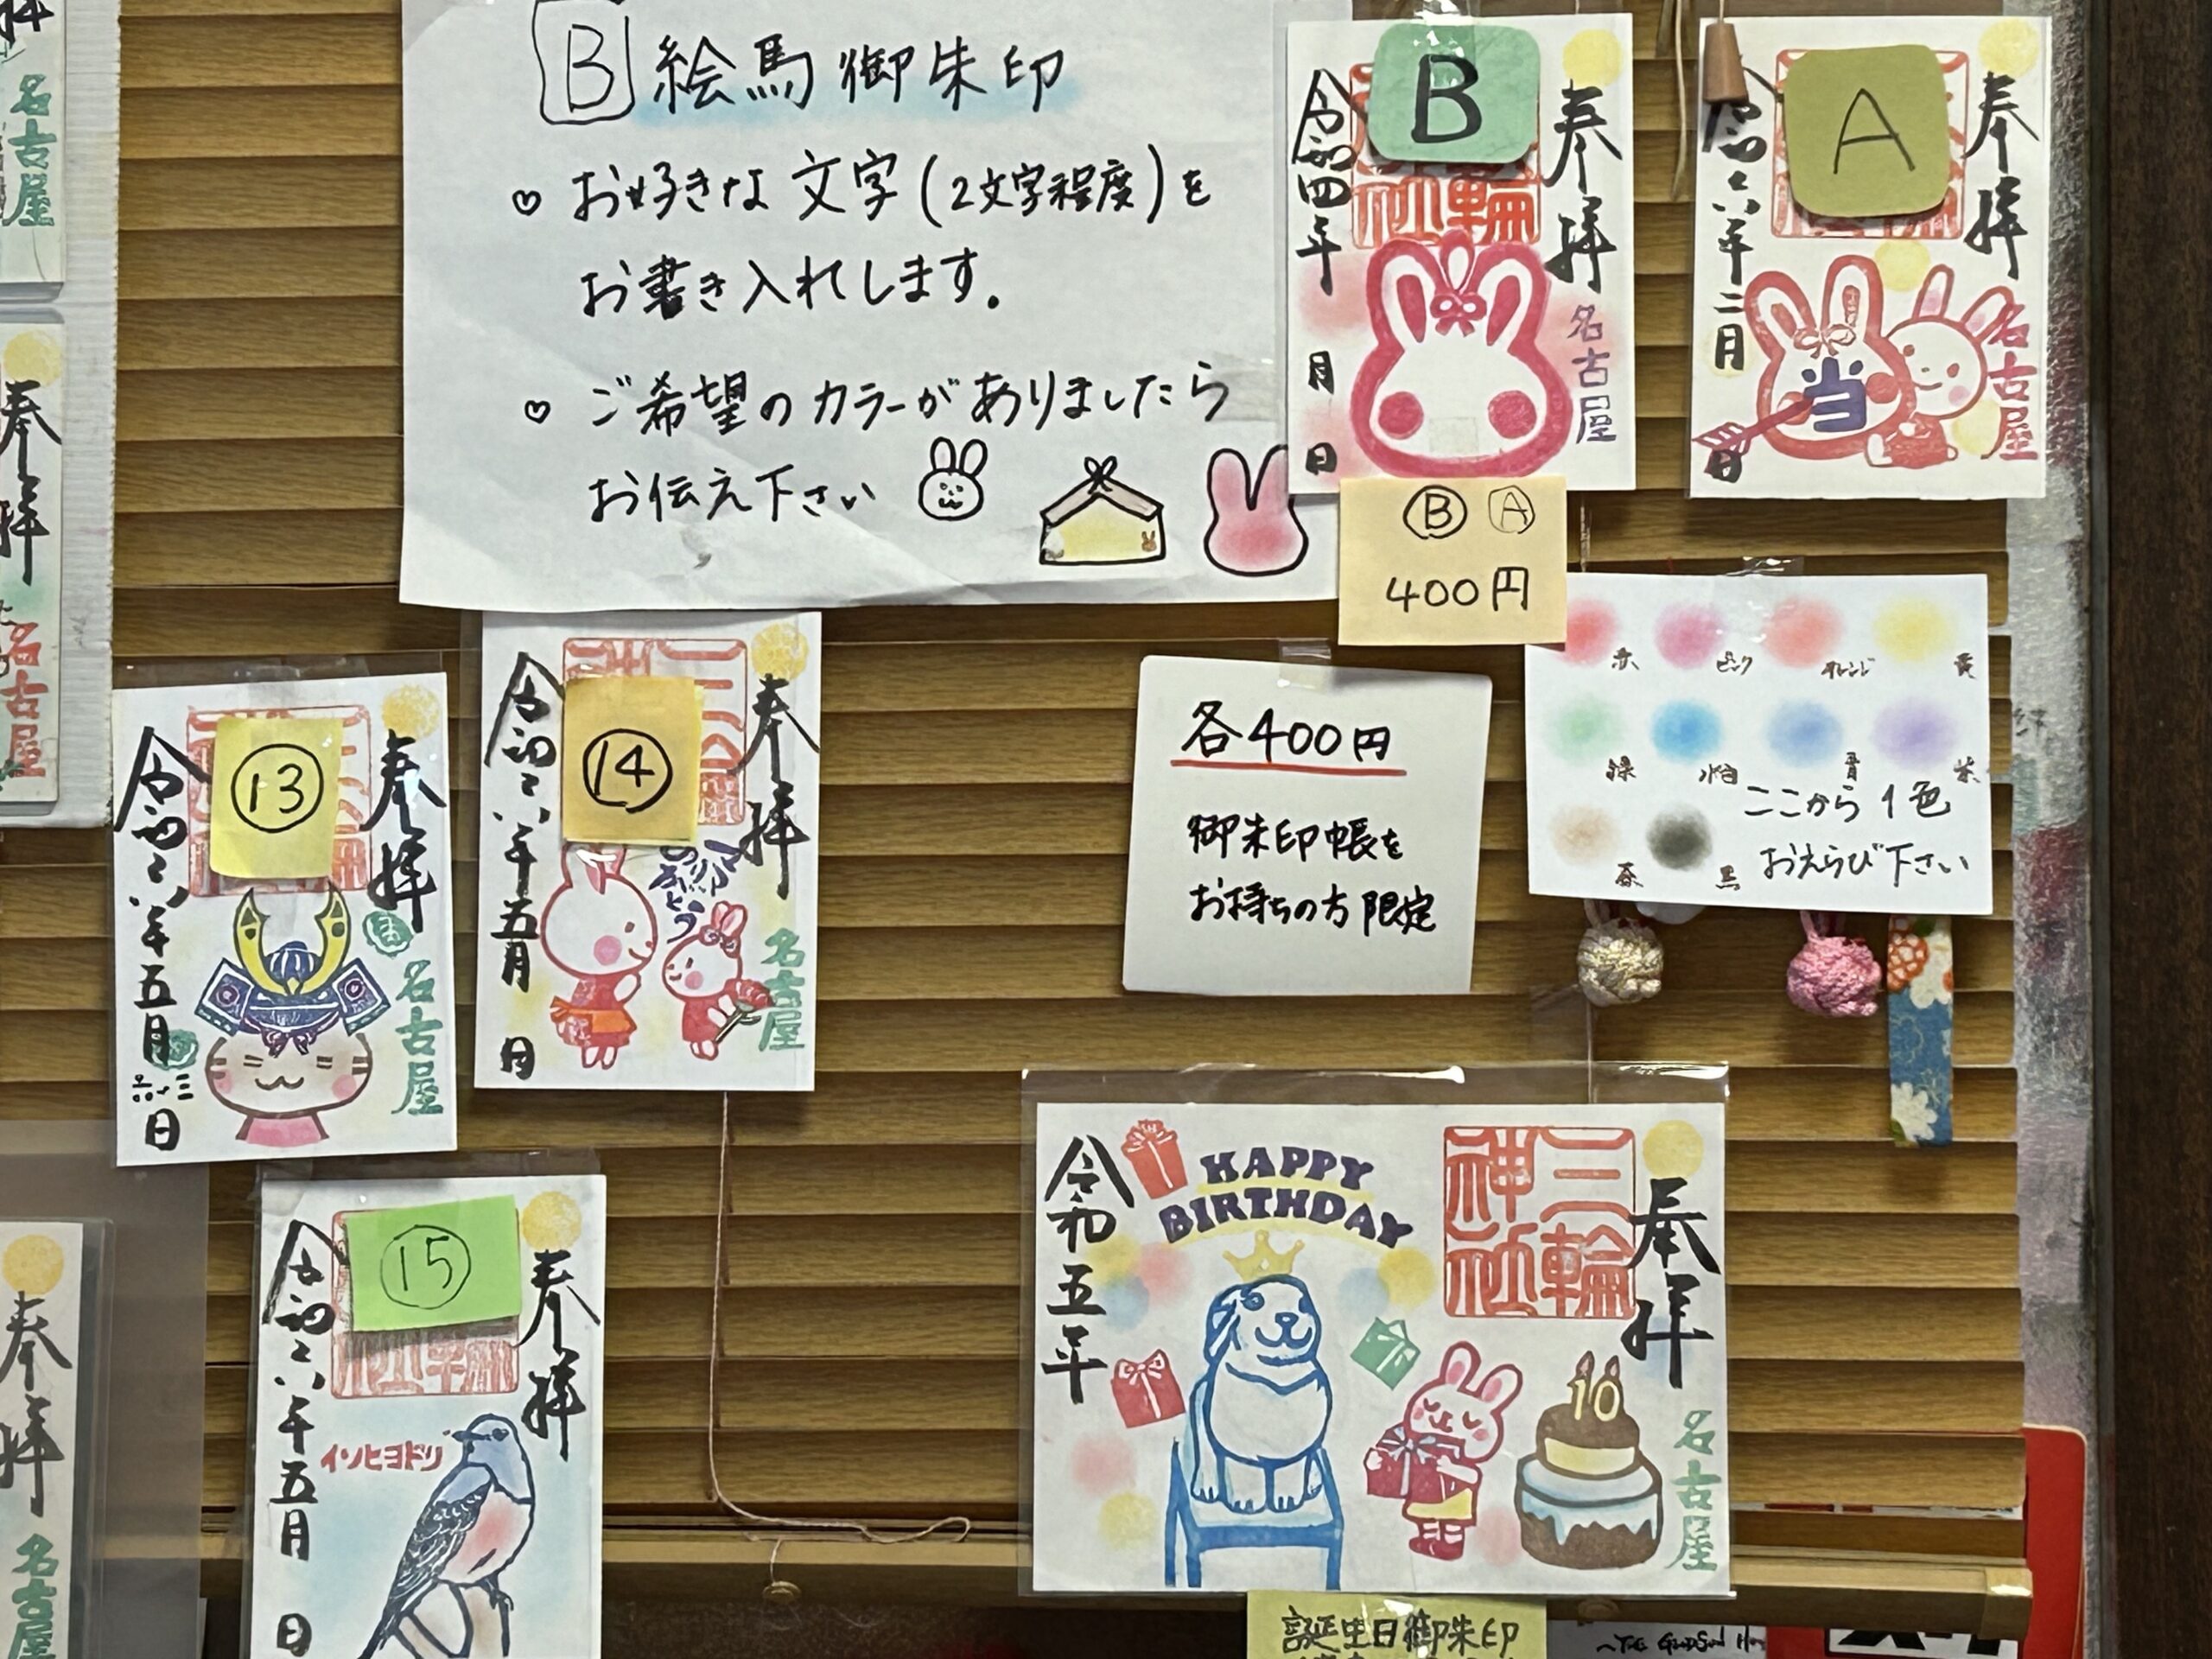 B 絵馬御朱印
♡ お好きな文字(2文字程度)を
お書き入れします。
♡ ご希望のカラーがありましたら
お伝え下さい
B
奉拝
三輪神社
令和四年 月 日
名古屋
A
奉拝
令和六年二月 日
当
名古屋
Ⓑ Ⓐ
400円
赤 ピンク オレンジ 黄
緑 水色 青 紫
茶 黒
ここから1色
おえらび下さい
各400円
御朱印帳を
お持ちの方限定
⑬
奉拝
令和六年五月 日
名古屋
⑭
奉拝
令和六年五月 日
名古屋
⑮
奉拝
令和六年五月 日
イソヒヨドリ
奉拝
三輪神社
HAPPY
BIRTHDAY
令和五年
10
名古屋
誕生日御朱印
名古屋
奉拝
名古屋
奉拝
名古屋